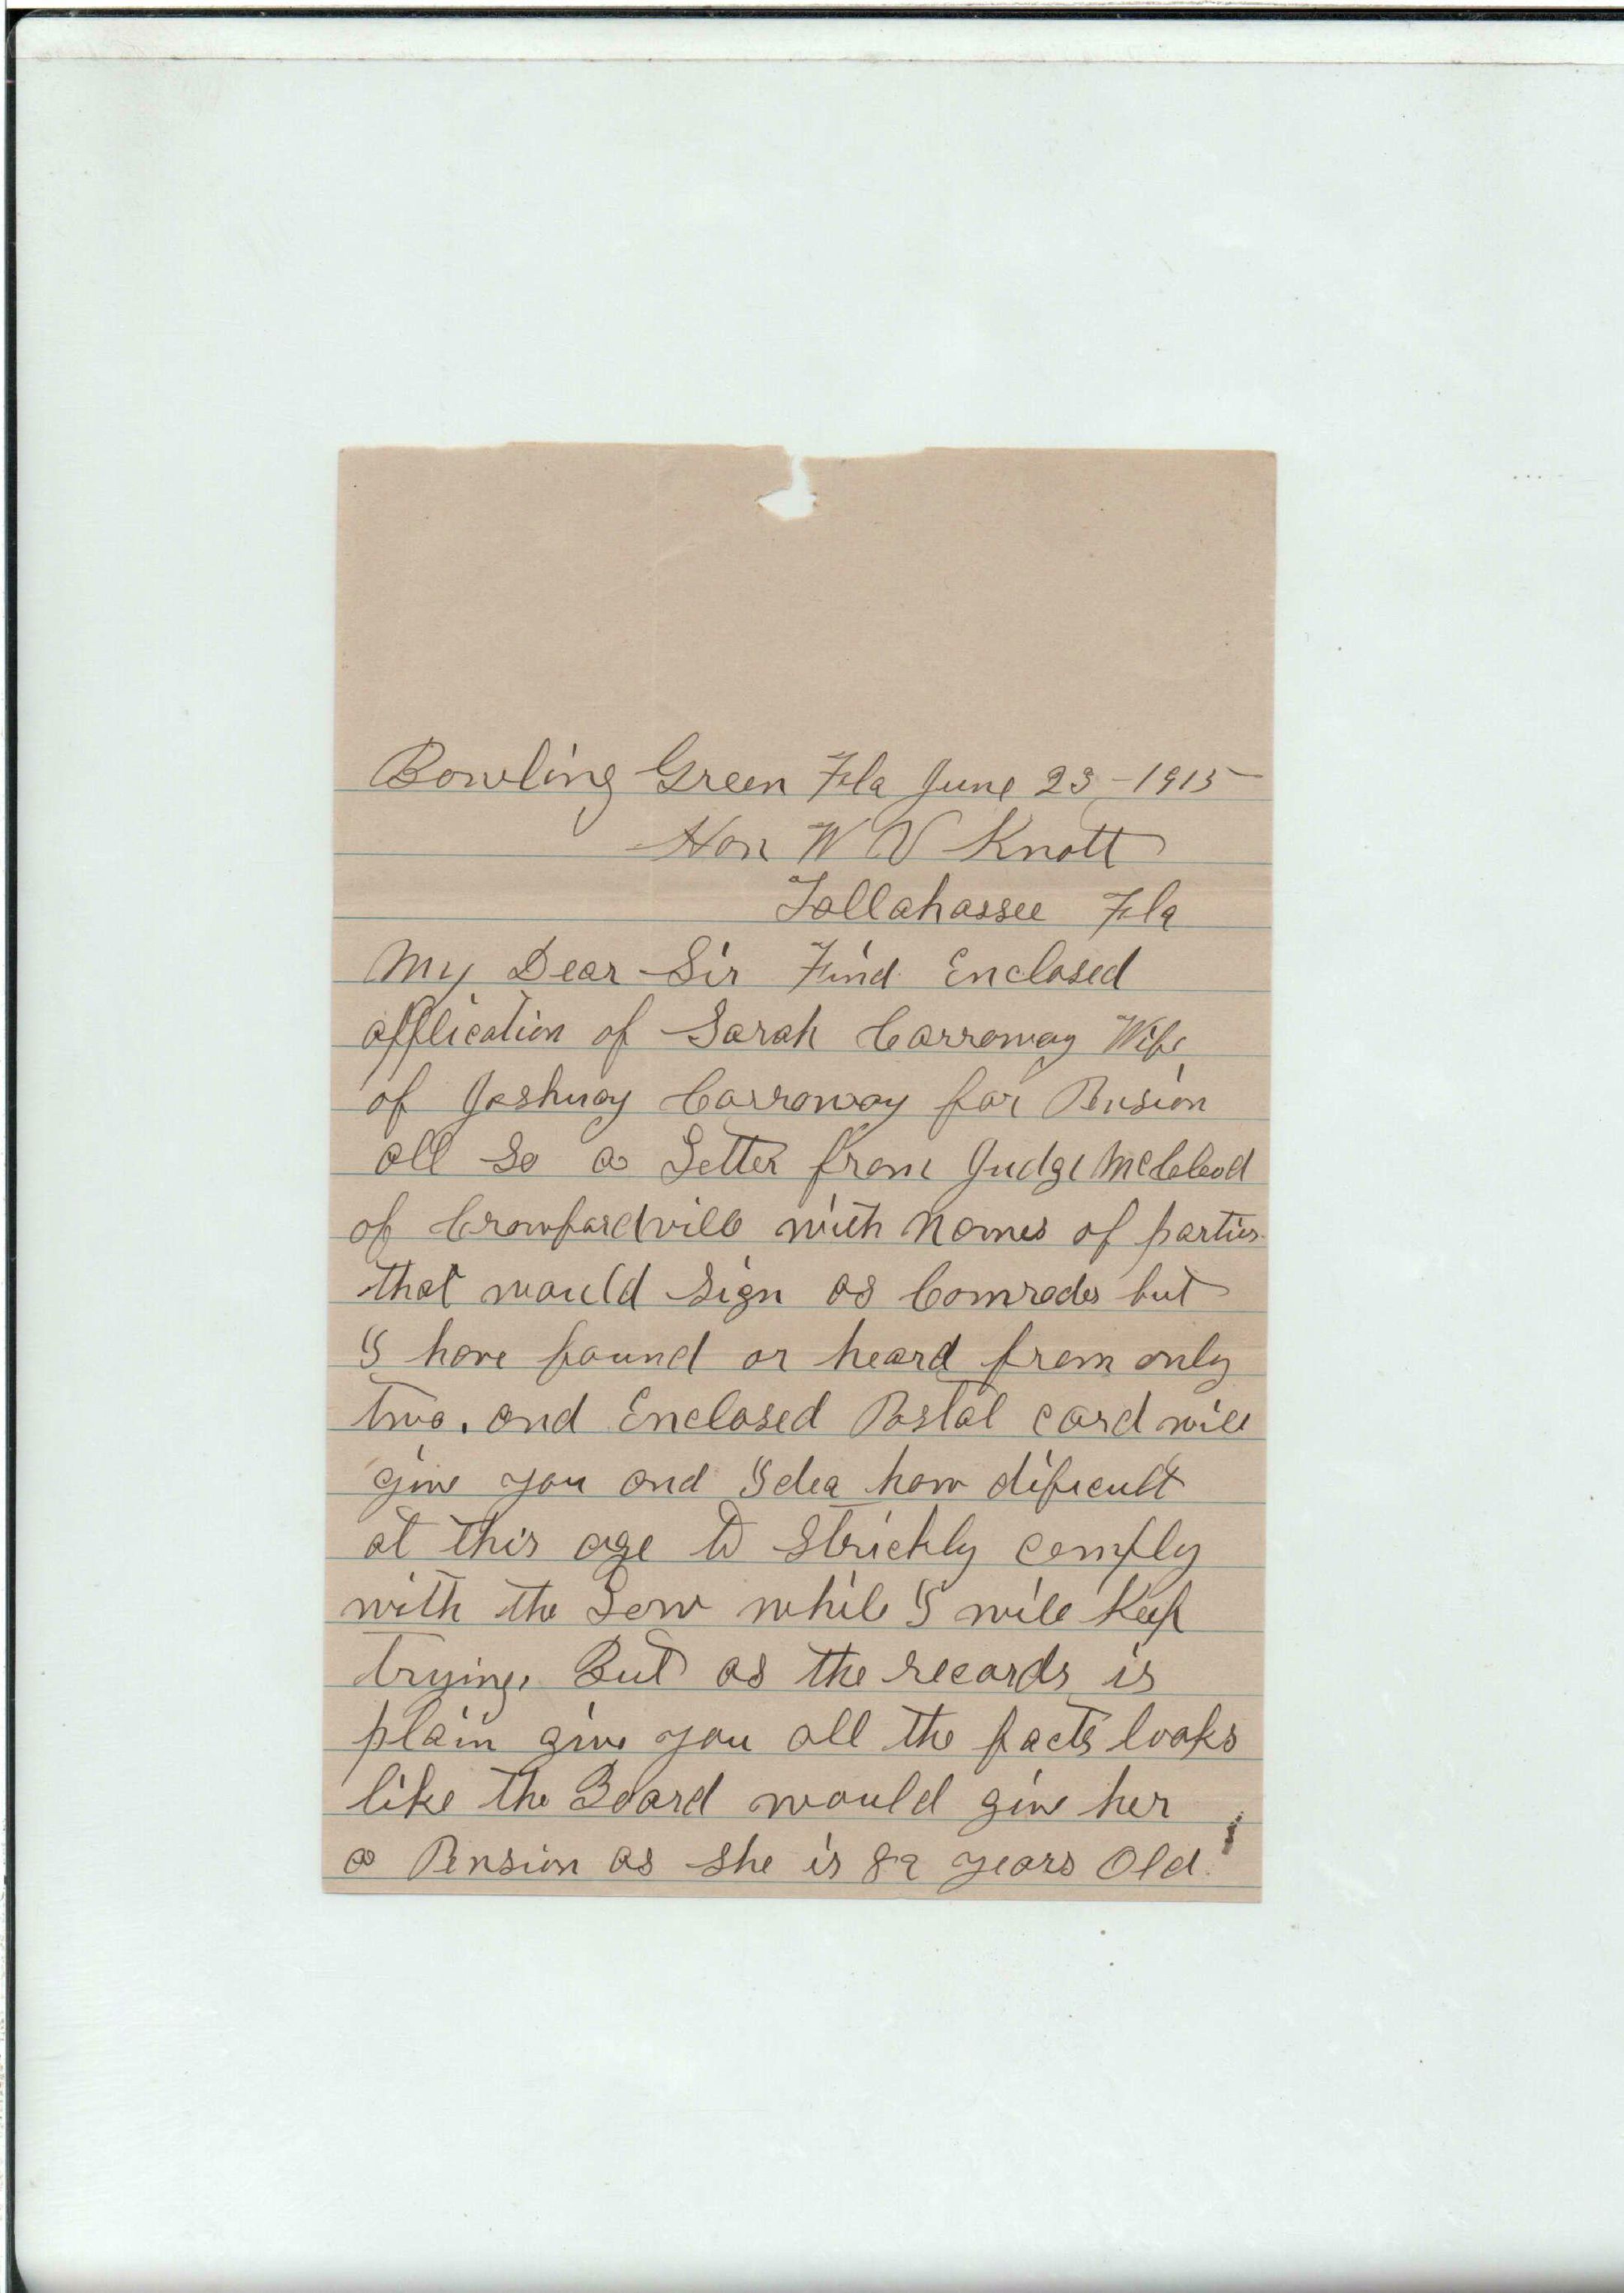 Bowling Green Fla June 23-1915
Hon W V Knott
Tallahassee Fla
My Dear Sir Find Enclosed
application of Sarah Carroway Wife
of Joshuay Carroway for Pension
all So a Letter from Judge McCleod
of Crowfardville with Names of parties
that would Sign as Comrades but
I have found or heard from only
two. and Enclosed Postal card will
give you and Idea how dificult
at this age to Strickly comply
with the Law while I will Keep
trying. But as the records is
plain give you all the facts looks
like the Board would give her
a Pension as She is 82 years Old.